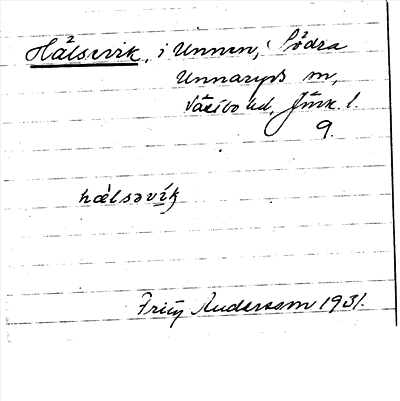 Hålsevik, i Unnen, i Södra
Unnaryds sn,
Västbo hd, Jönk. l.
9.
hålsəvik
Fritz Andersson 1931.